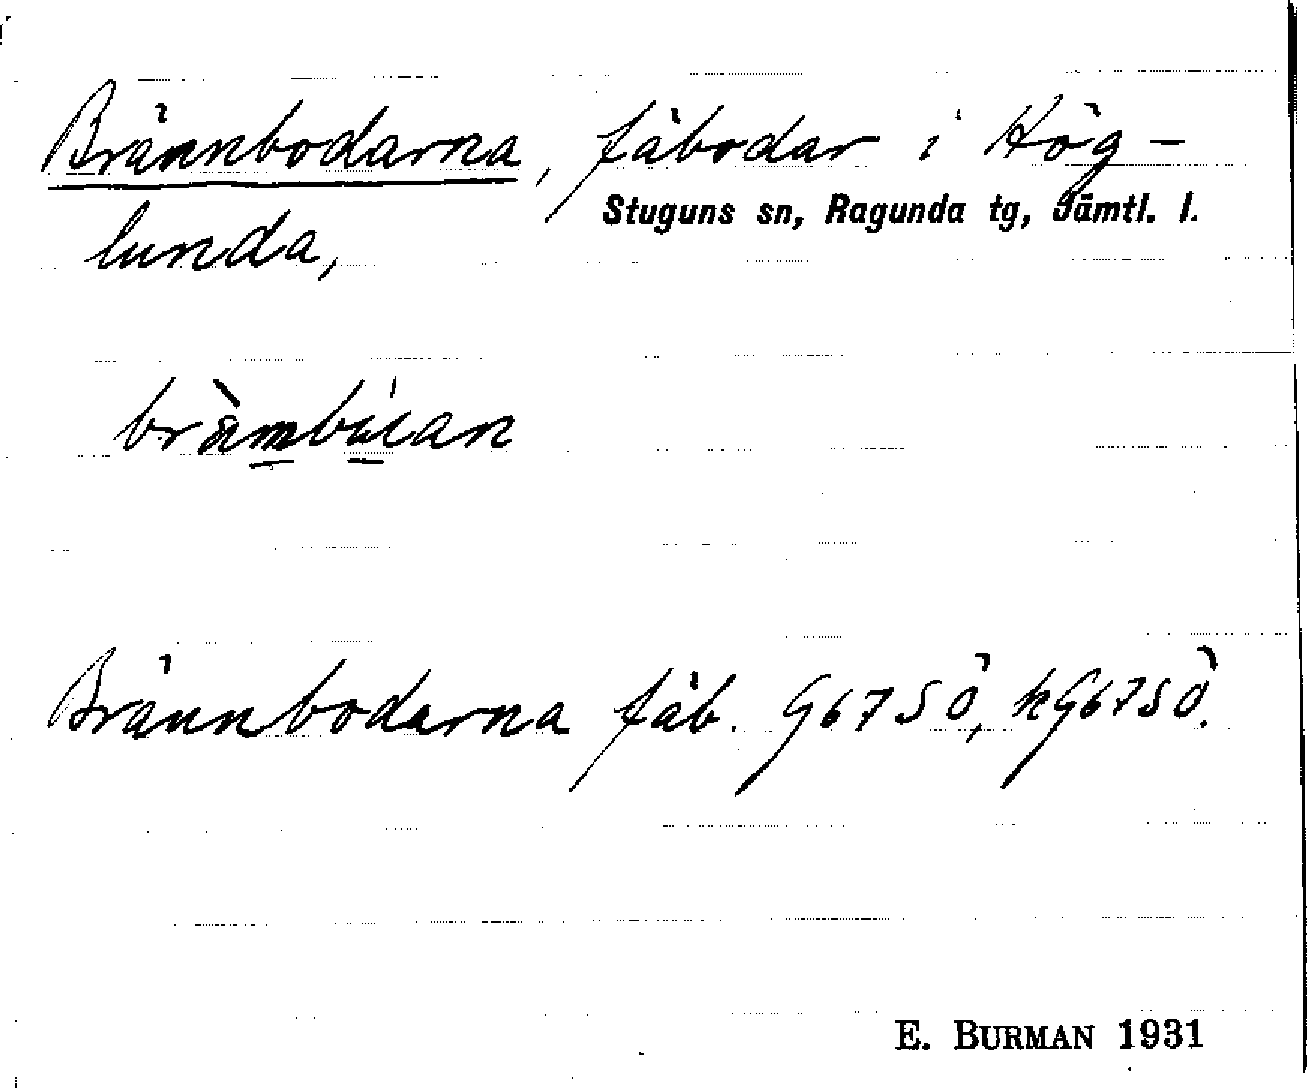 Brännbodarna, fäbodar i Hög-
Stuguns sn, Ragunda tg, Jämtl. l.
lunda,
Brännbodarna fäb. G67SÖ, hG67SÖ.
E. BURMAN 1931